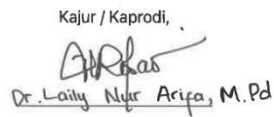 Kajur / Kaprodi,
Dr. Laily Nur Arifa, M.Pd